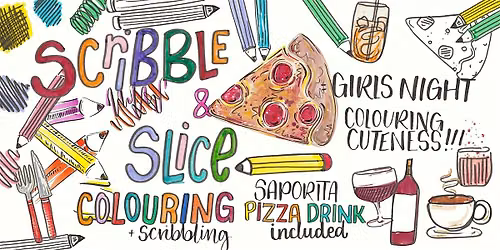 SCRIBBLE
&
SLICE
COLOURING
+ scribbling
SAPORITA
PIZZA DRINK
included
GIRLS NIGHT
COLOURING
CUTENESS!!!